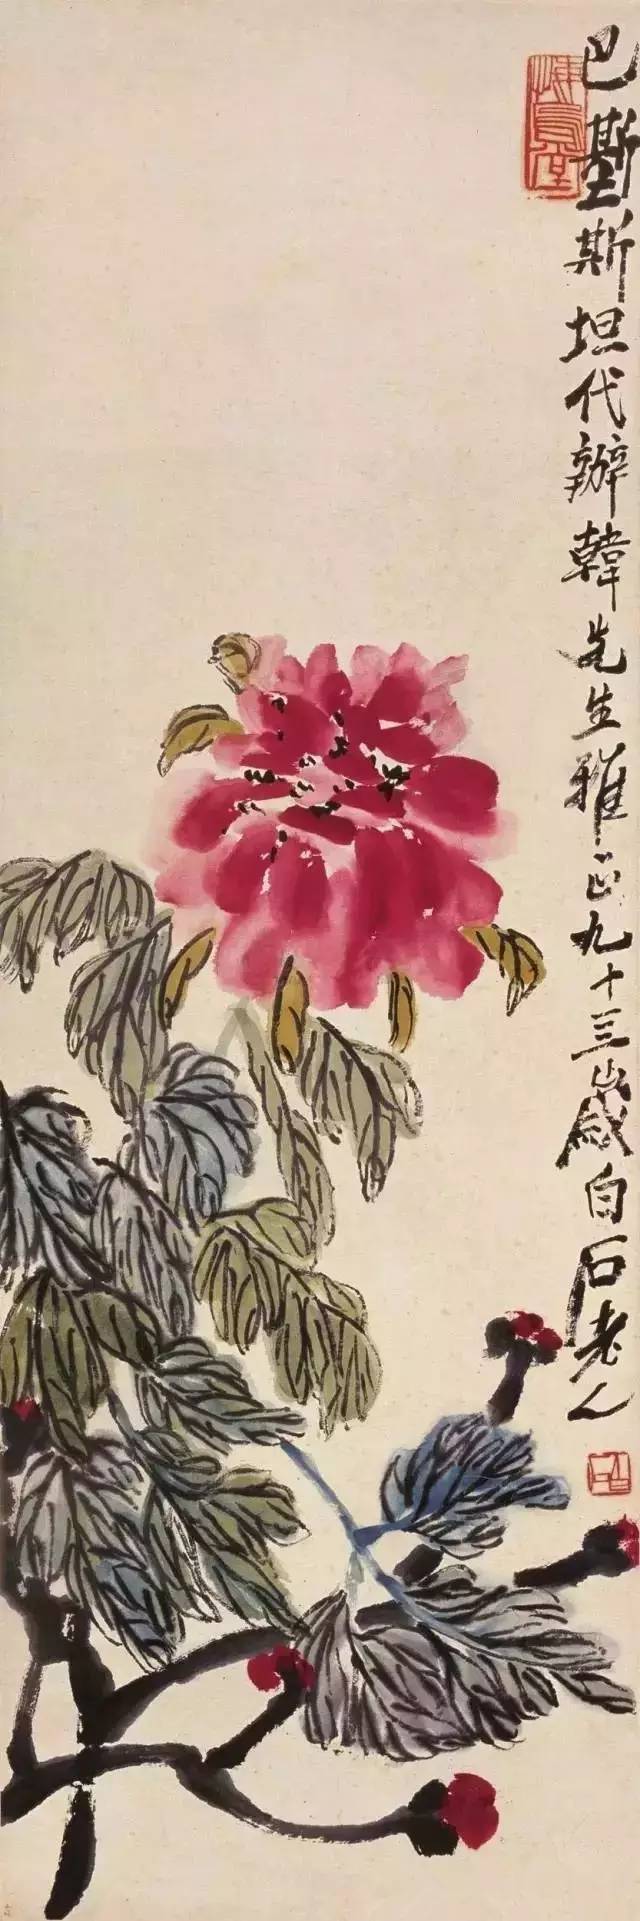 巴基斯坦代辦韓先生雅正九十三歲白石老人
悔烏堂